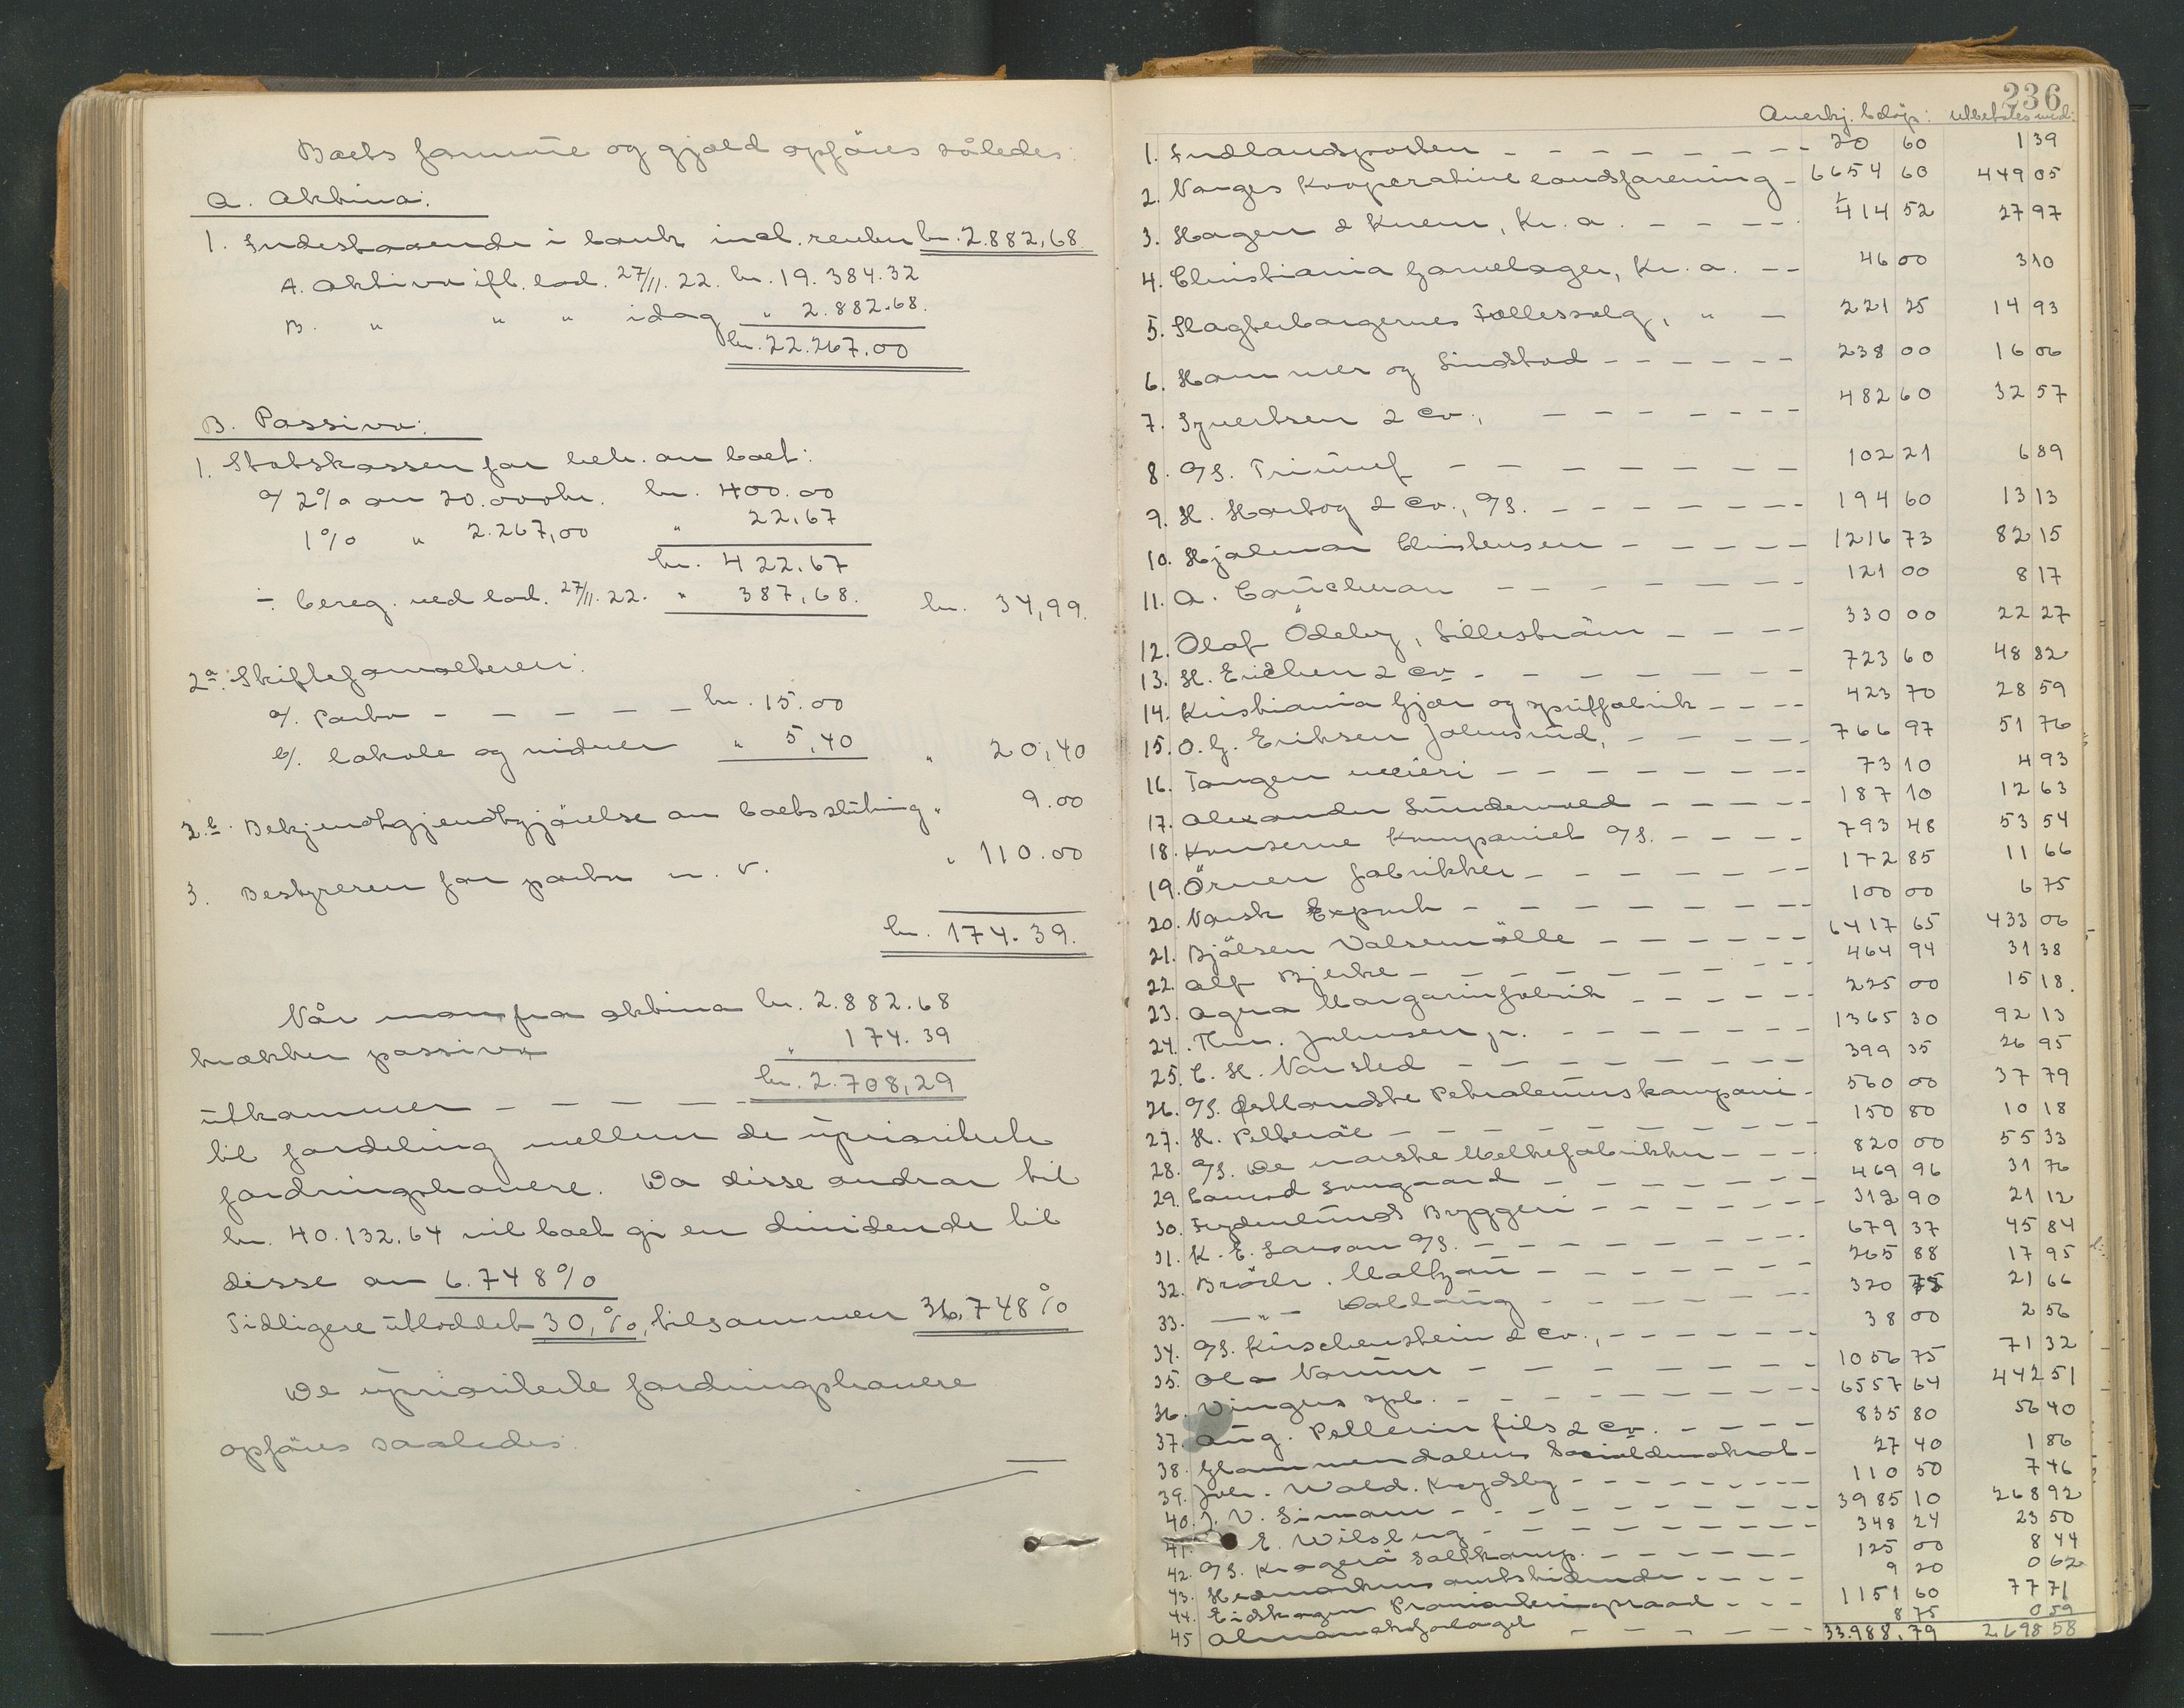 Boets formue og gjæld opføres således:
A. Aktiva:
1. Indestaaende i bank incl. renter kr. 2.882,68
A. Aktiva ifl. lod. 27/11. 22. kr. 19.384.32
B. " " " idag " 2.882.68.
kr. 22.267.00
B. Passiva:
1. Statskassen for beh. av boet:
a/ 2% av 20.000 kr. kr. 400.00
1% " 2.267,00 " 22,67
kr. 422.67
÷ bereg. ved lod. 27/11. 22. " 387,68. kr. 34,99.
2a. Skifteforvalteren:
a/. Porto - - - - - kr. 15.00
b/. lokale og vidner " 5,40 " 20,40
2.b. Bekjendtgjendtgjörelse av boets slutning " 9.00
3. Bestyreren for porto m. v. " 110.00
kr. 174.39.
Når man fra aktiva kr. 2.882.68
trækker passiva " 174.39
utkommer - - - - - kr. 2.708,29
til fordeling mellem de uprioriterte
fordringshavere. Da disse andrar til
kr. 40.132.64 vil boet gi en dividende til
disse av 6.748%
Tidligere utloddet 30,%, tilsammen 36,748%
De uprioriterte fordringshavere
opføres saaledes:
236
Anerkj. beløp: utbetales med:
1. Indlandsposten - - - - - - - 20 60 1 39
2. Norges Kooperative landsforening - 6654 60 449 05
3. Hagen & Knem, Kr. a. - - - - 414 52 27 97
4. Christiania Garvelager, Kr. a. - - 46 00 3 10
5. Slagterborgernes Fællessalg, " - 221 25 14 93
6. Hammer og Lindstad - - - - - - 238 00 16 06
7. Syvertsen & Co., - - - - - - - 482 60 32 57
8. A/S. Triumf - - - - - - - 102 21 6 89
9. H. Hartog & Co., A/S. - - - - - - 194 60 13 13
10. Hjalmar Christensen - - - - - 1216 73 82 15
11. A. Cauchman - - - - - - 121 00 8 17
12. Olaf Ödeby, Lilleström - - - - 330 00 22 27
13. H. Erichsen & Co - - - - - - - 723 60 48 82
14. Kristiania Gjær og spritfabrik - - - - 423 70 28 59
15. O. G. Eriksen Johnsrud, - - - - - 766 97 51 76
16. Tangen meieri - - - - - - - - 73 10 4 93
17. Alexander Sundervold - - - - - 187 10 12 63
18. Konserve Kompaniet A/S. - - - - 793 48 53 54
19. Örnen fabrikker - - - - - - - 172 85 11 66
20. Norsk Export - - - - - - - - 100 00 6 75
21. Bjölsen Valsemölle - - - - - - 6417 65 433 06
22. Alf Bjerke - - - - - - - - 464 94 31 38
23. Agra Margarinfabrik - - - - - 225 00 15 18.
24. Thv. Johnsen jr. - - - - - - - 1365 30 92 13
25. C. H. Norsted - - - - - - - 399 35 26 95
26. A/S. Østlandske Petroleumskompani - 560 00 37 79
27. H. Petteröe - - - - - - - - - 150 80 10 18
28. A/S. De norske Melkefabrikker - - - - 820 00 55 33
29. Conrad Langaard - - - - - - - 469 96 31 76
30. Frydenlunds Bryggeri - - - - - - 312 90 21 12
31. K. E. Larson A/S. - - - - - - - 679 37 45 84
32. Brödr. Maltzau - - - - - - - 265 88 17 95
33. - " - Dobloug - - - - - - - 320 75 21 66
34. A/S. Kirschenstein & Co., - - - - - - 38 00 2 56
35. Ola Narum - - - - - - - - 1056 75 71 32
36. Vingers spb. - - - - - - - - - 6557 64 442 51
37. Aug. Pellerin fils & Co. - - - - - 835 80 56 40
38. Glommendalens Socialdemokrat - 27 40 1 86
39. Joh. Wald. Krydsby - - - - - - - - 110 50 7 46
40. J. V. Simarn - - - - - - - - - 3985 10 268 92
41. E. Wilsberg - - - - - - - - - 348 24 23 50
42. A/S. Kragerö Saltkomp. - - - - - - 125 00 8 44
43. Hedmarkens amtstidende - - - - 9 20 0 62
44. Eidskogen Provianteringsraad - - - 1151 60 77 71
45 Almanakforlaget - - - - - - 8 75 0 59
33.988,79 2,698 58